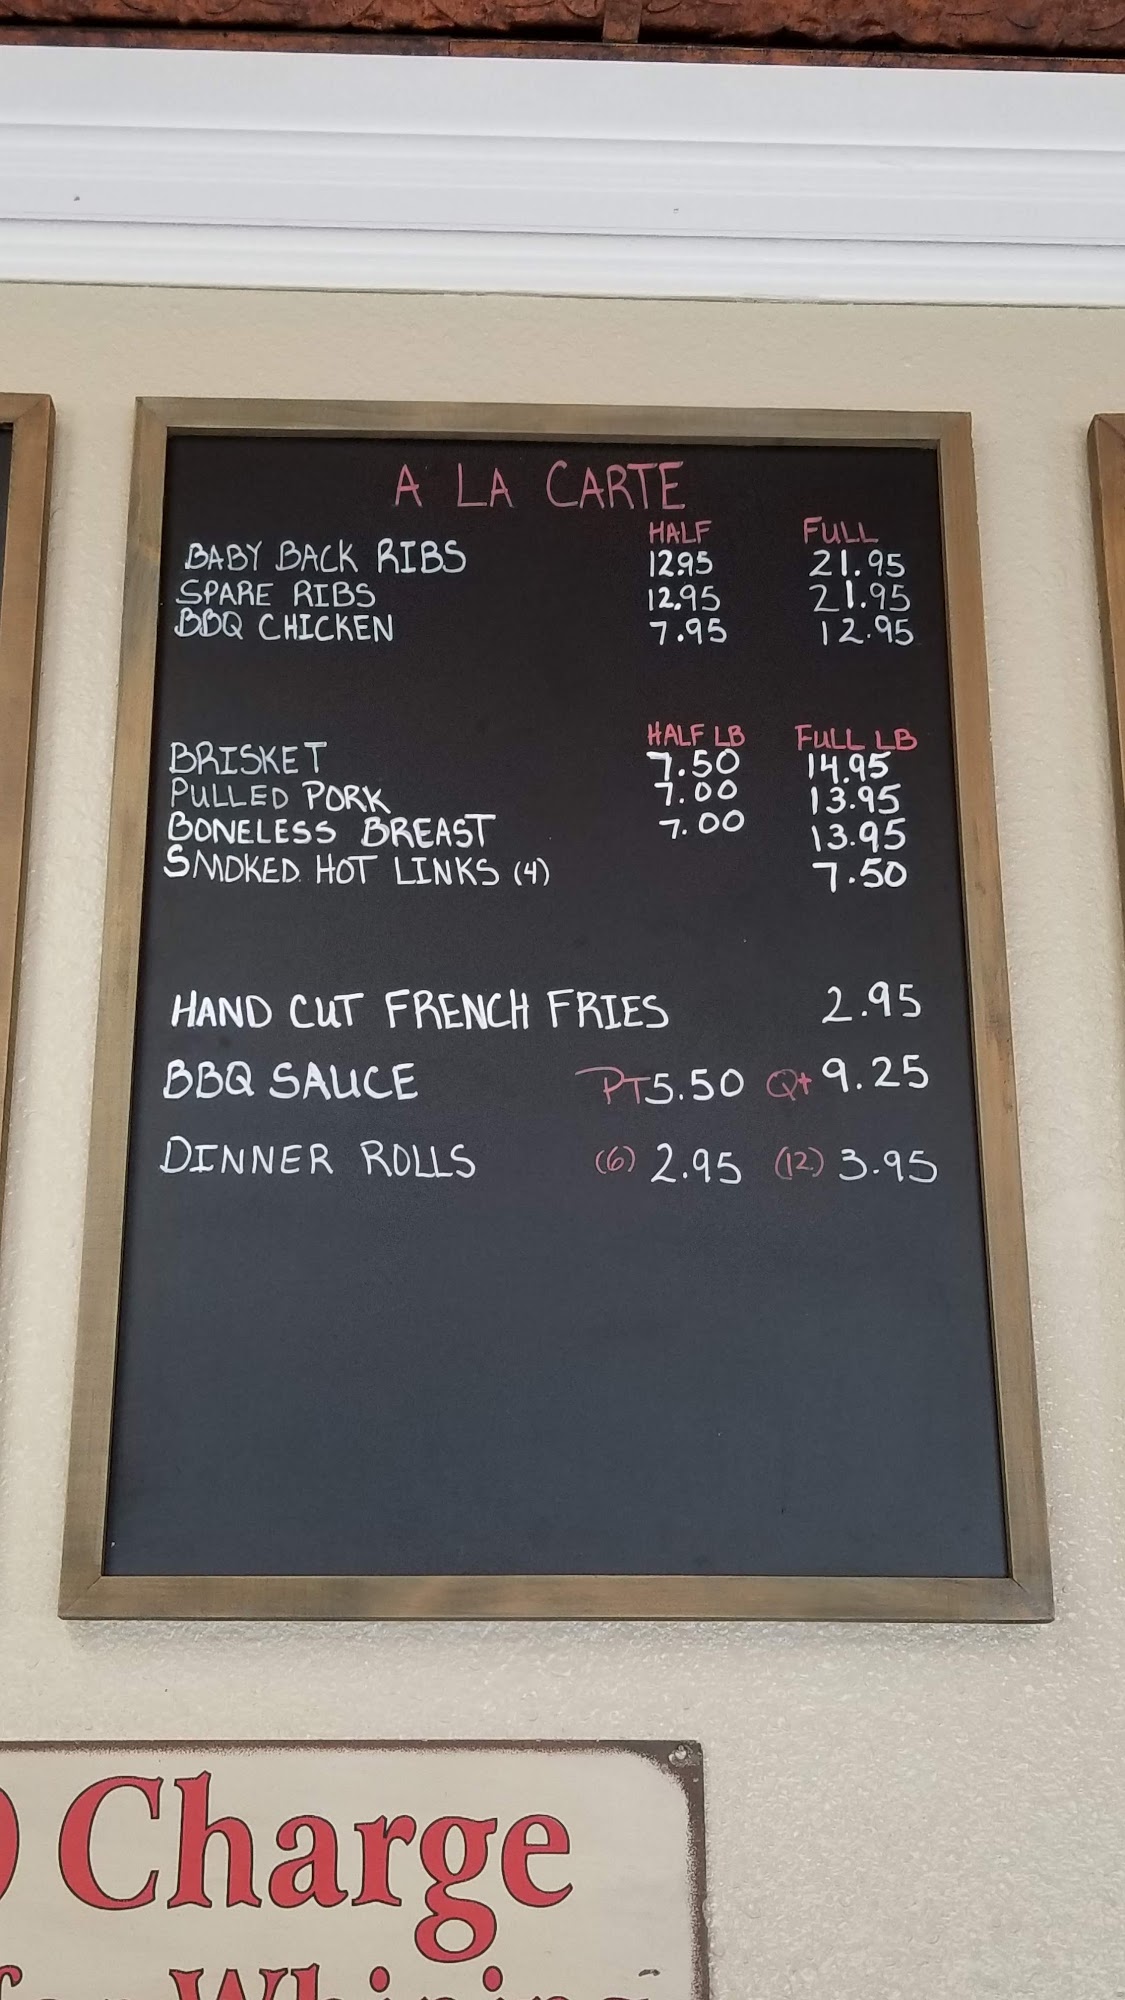 A LA CARTE
HALF FULL
BABY BACK RIBS 12.95 21.95
SPARE RIBS 12.95 21.95
BBQ CHICKEN 7.95 12.95
HALF LB FULL LB
BRISKET 7.50 14.95
PULLED PORK 7.00 13.95
BONELESS BREAST 7.00 13.95
SMOKED HOT LINKS (4) 7.50
HAND CUT FRENCH FRIES 2.95
BBQ SAUCE PT 5.50 Qt 9.25
DINNER ROLLS (6) 2.95 (12) 3.95
Charge
for Whining